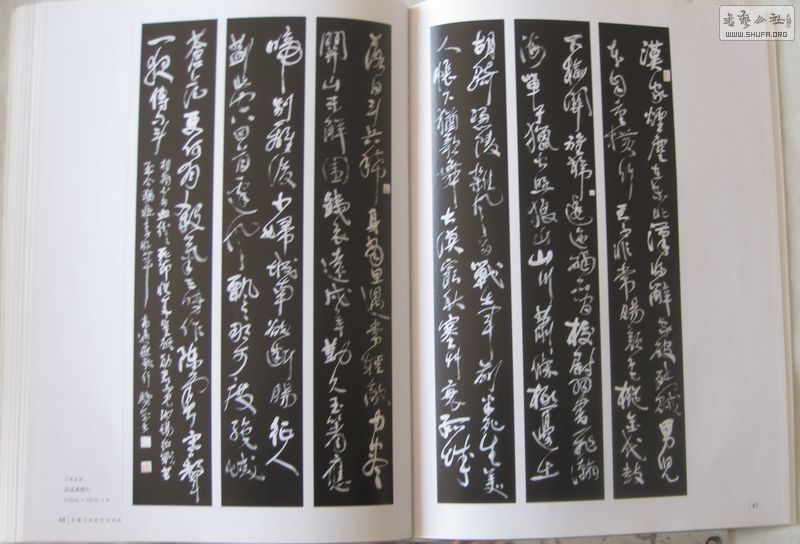 書藝公社
WWW.SHUFA.ORG
漢家煙塵在東北漢將辭家破殘賊男兒
本自重橫行天子非常賜顏色摐金伐鼓
下榆關旌旆逶迤碣石間校尉羽書飛瀚
海單于獵火照狼山山川蕭條極邊土
胡騎憑陵雜風雨戰士軍前半死生美
人帳下猶歌舞大漠窮秋塞草衰孤城
落日斗兵稀身當恩遇常輕敵力盡
關山未解圍鐵衣遠戍辛勤久玉箸應
啼別離後少婦城南欲斷腸征人
薊北空回首邊風飄飄那可度絕域
蒼茫更何有殺氣三時作陣雲寒聲
一夜傳刁斗
相看白刃血紛紛死節從來豈顧勳君不見沙場征戰苦
至今猶憶李將軍 高適燕歌行
44
45